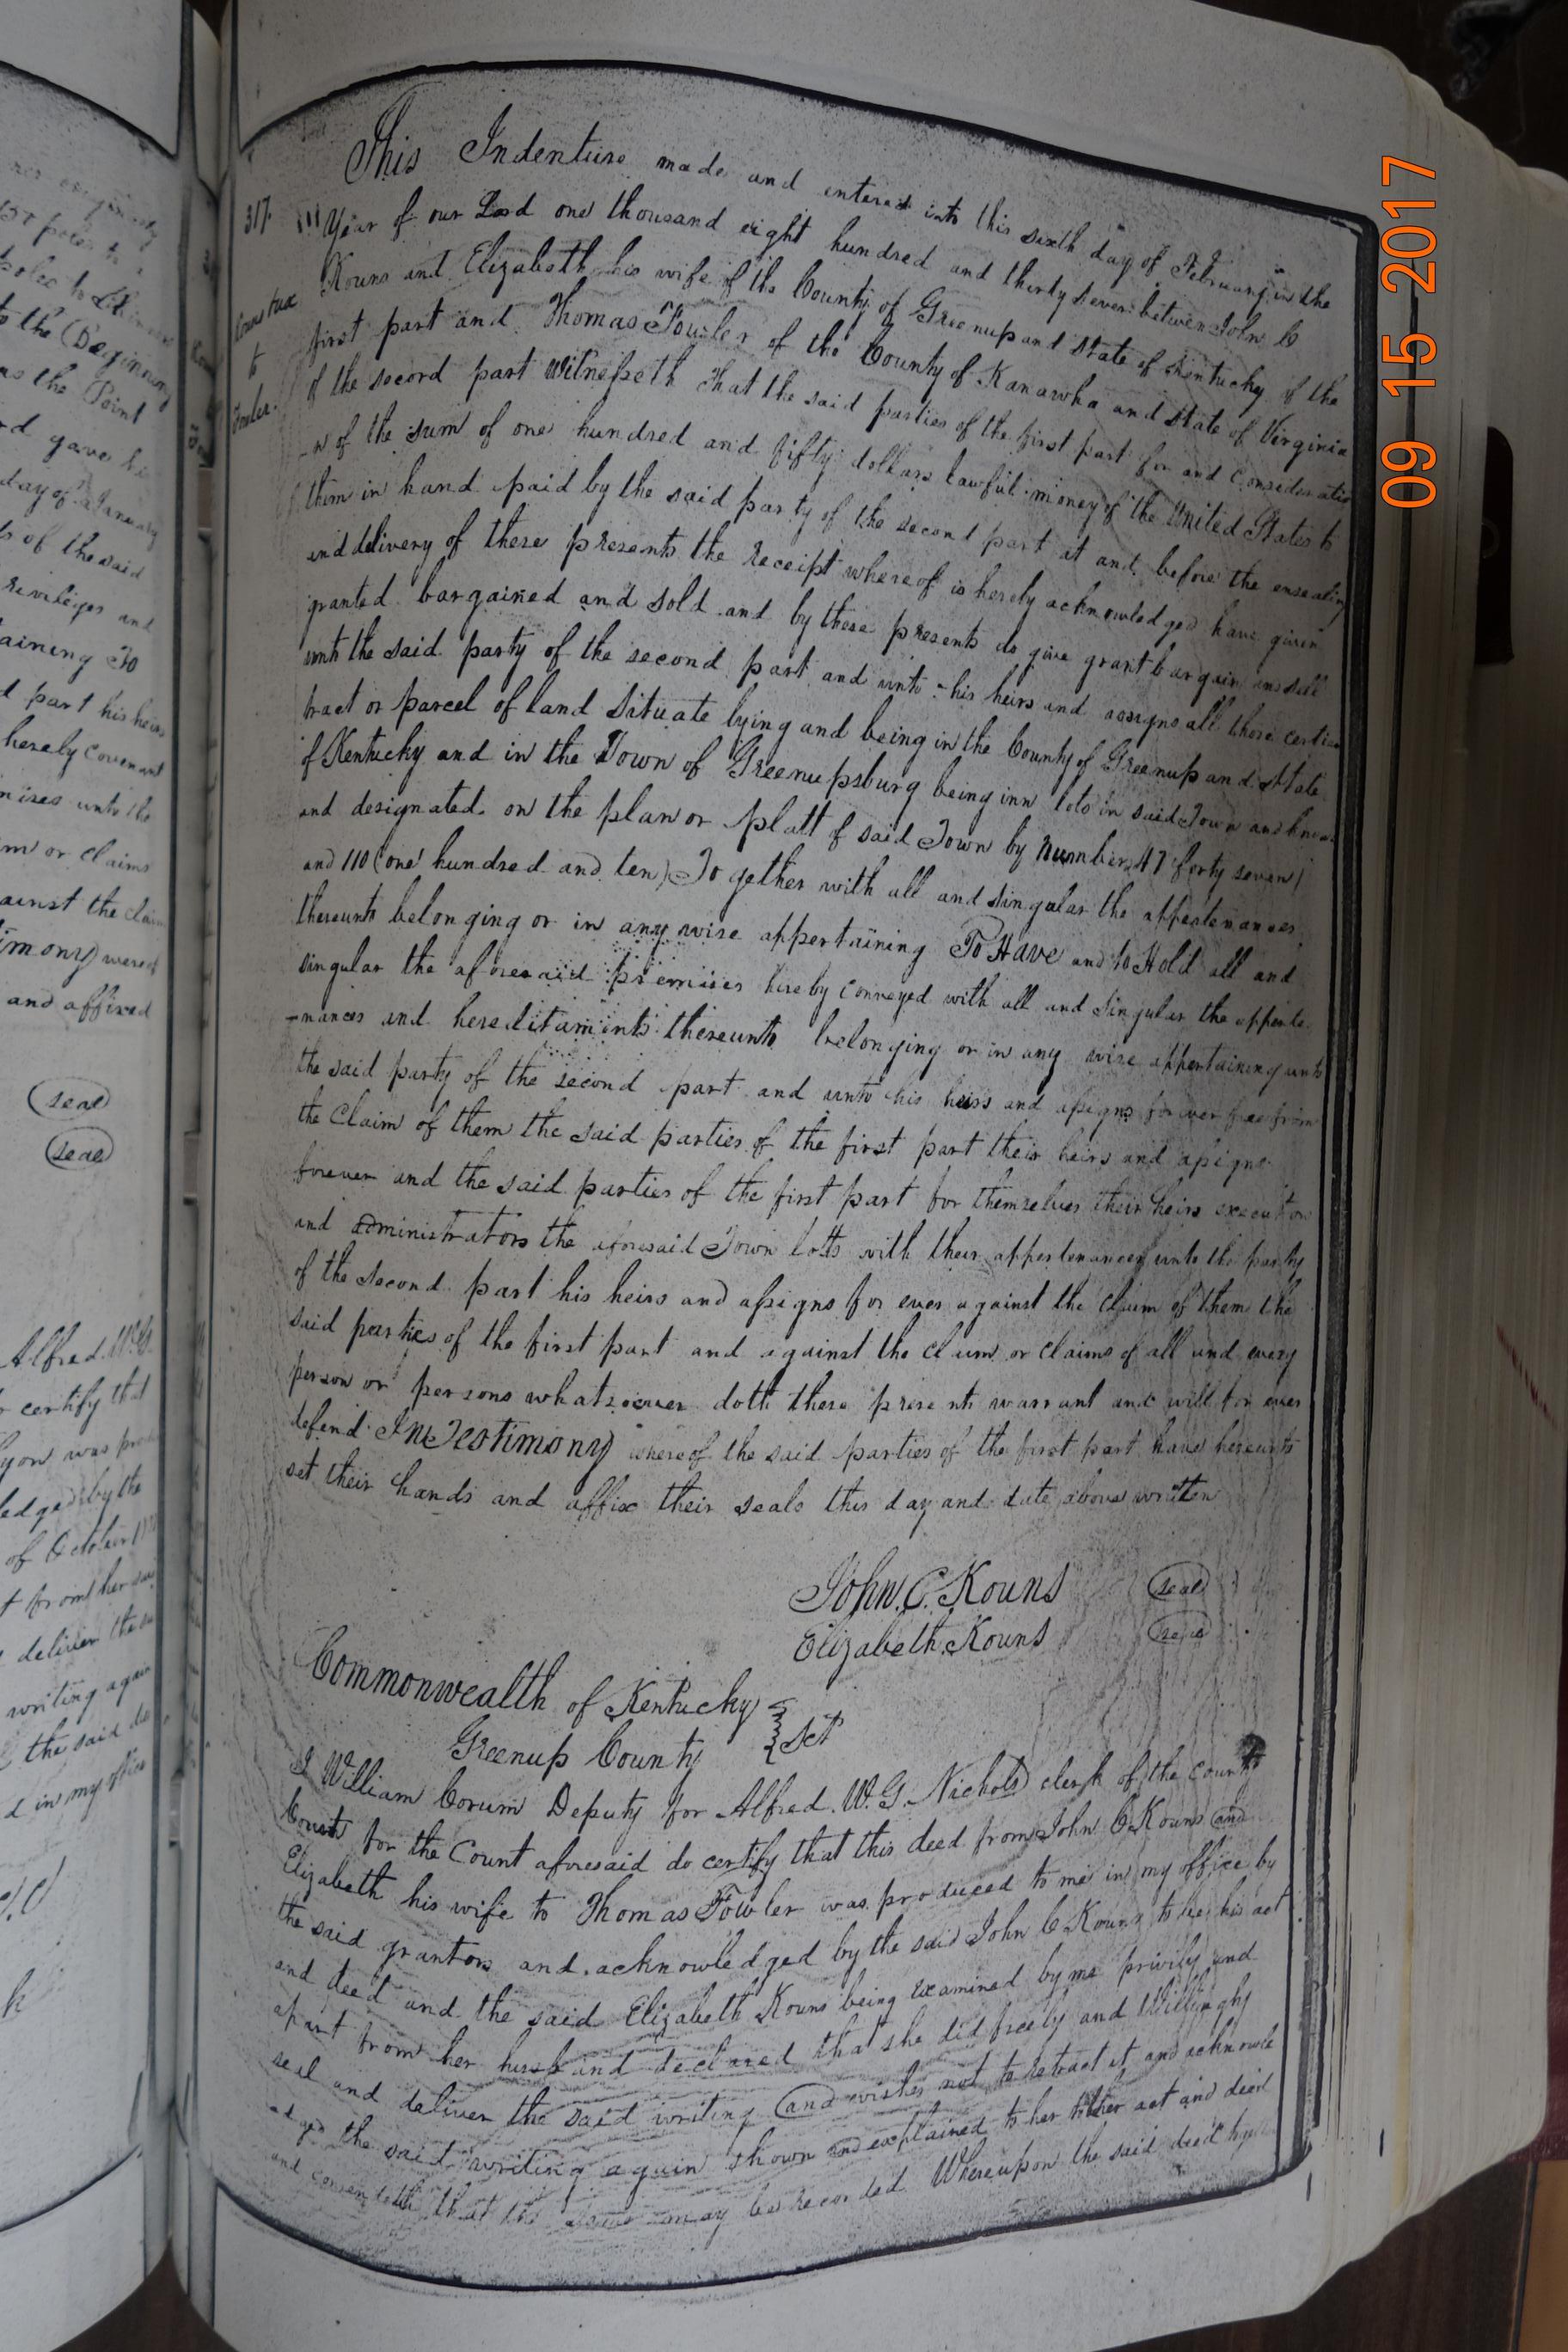 This Indenture made and entered into this sixth day of February in the
Year of our Lord one thousand eight hundred and thirty seven between John C
Kouns and Elizabeth his wife of the County of Greenup and State of Kentucky of the
first part and Thomas Fowler of the County of Kanawha and State of Virginia
of the second part Witnesseth That the said parties of the first part for and Consideratio
-n of the sum of one hundred and fifty dollars lawful money of the United States to
them in hand paid by the said party of the second part at and before the ensealing
and delivery of these presents the receipt whereof is hereby acknowledged have given
granted bargained and sold and by these presents do give grant bargain and sell
unto the said party of the second part and unto his heirs and assigns all those certain
tract or parcel of land situate lying and being in the County of Greenup and State
of Kentucky and in the Town of Greenupsburg being inn lots in said Town and known
and designated on the plan or platt of said Town by Number 47 forty seven)
and 110 (one hundred and ten) Together with all and singular the appertenances
thereunto belonging or in any wise appertaining To Have and to Hold all and
singular the aforesaid premises hereby conveyed with all and singular the apperte
-nances and hereditaments thereunto belonging or in any wise appertaining unto
the said party of the second part and unto his heirs and assigns forever free from
the Claim of them the said parties of the first part their heirs and assigns
forever and the said parties of the first part for themselves their heirs executors
and administrators the aforesaid Town lotts with their appertenances unto the party
of the second part his heirs and assigns for ever against the claim of them the
said parties of the first part and against the claim or claims of all and every
person or persons whatsoever doth these presents warrant and will for ever
defend In Testimony whereof the said parties of the first part have hereunto
set their hands and affix their seals this day and date above written
John. C. Kouns seal
Elizabeth Kouns seal
Commonwealth of Kentucky
Greenup County } Sct
I William Corum Deputy for Alfred. W. G. Nichols clerk of the County
Courts for the Count aforesaid do certify that this deed from John C Kouns and
Elizabeth his wife to Thomas Fowler was produced to me in my office by
the said grantors and acknowledged by the said John C Kouns to be his act
and deed and the said Elizabeth Kouns being examined by me privily and
apart from her husband declared that she did freely and Willingly
seal and deliver the said writing and wishes not to retract it and acknowle
edged the said writing again shown and explained to her to be her act and deed
and consenteth that the same may be recorded Whereupon the said deed hy
317.
to
09 15 2017
to the Beginning
as the Point
gave he
day of January
of the said
privileges and
taining To
part his heirs
hereby covenant
unto the
m or claims
against the claim
and affixed
seal
seal
Alfred W. G.
certify that
edged by the
of October
from her
deliver the
writing again
the said
d in my office